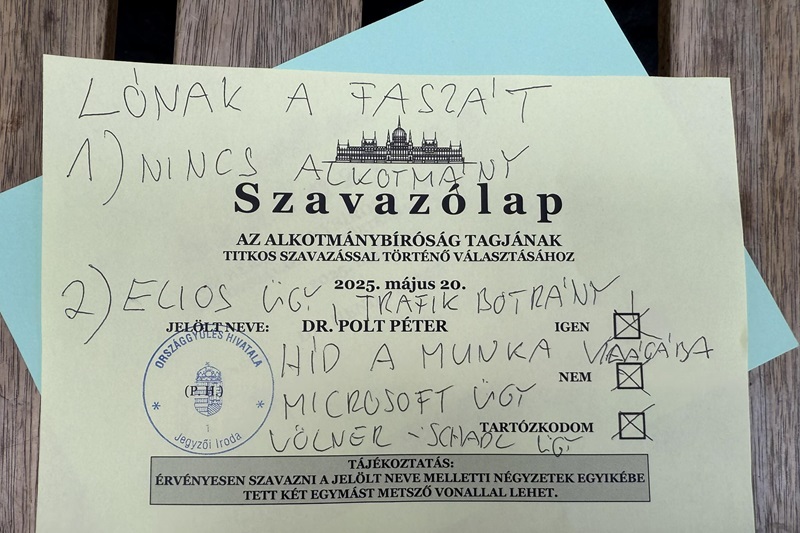 LÓNAK A FASZÁT
1) NINCS ALKOTMÁNY
Szavazólap
AZ ALKOTMÁNYBÍRÓSÁG TAGJÁNAK
TITKOS SZAVAZÁSSAL TÖRTÉNŐ VÁLASZTÁSÁHOZ
2025. május 20.
2) ELIOS ÜGY, TRAFIK BOTRÁNY
JELÖLT NEVE: DR. POLT PÉTER IGEN
HÍD A MUNKA VILÁGÁBA
NEM
MICROSOFT ÜGY
TARTÓZKODOM
VÖLNER - SCHADL ÜGY
ORSZÁGGYŰLÉS HIVATALA
(P. H.)
1
Jegyzői Iroda
TÁJÉKOZTATÁS:
ÉRVÉNYESEN SZAVAZNI A JELÖLT NEVE MELLETTI NÉGYZETEK EGYIKÉBE
TETT KÉT EGYMÁST METSZŐ VONALLAL LEHET.